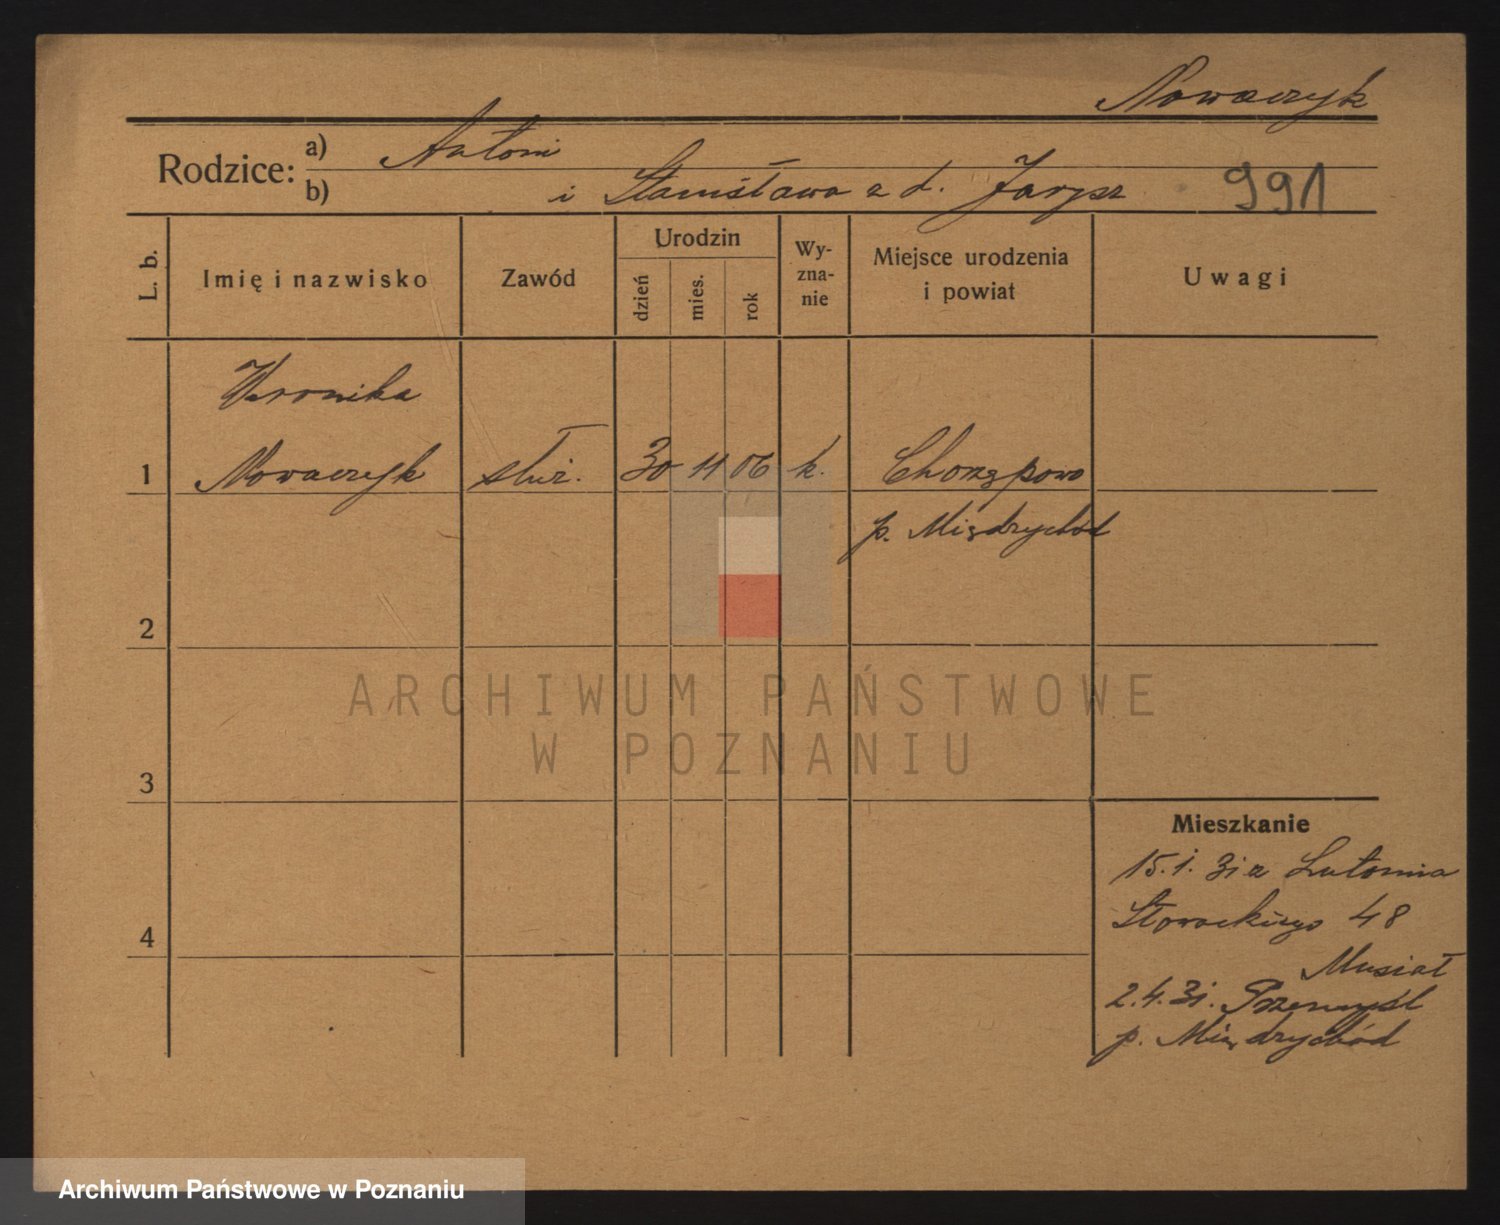 Nowaczyk
Rodzice: a) Antoni
b) i Stanisława z d. Jarysz 991
L. b. Imię i nazwisko Zawód Urodzin dzień mies. rok Wyznanie Miejsce urodzenia i powiat Uwagi
Weronika
1 Nowaczyk służ. 30 11 06 k. Chorzępowo
p. Międzychód
2
ARCHIWUM PAŃSTWOWE
W POZNANIU
3
Mieszkanie
15.1.31 z Lutomia
Słowackiego 48
4
Musiał
2.4.31. Przemyśl
p. Międzychód
Archiwum Państwowe w Poznaniu